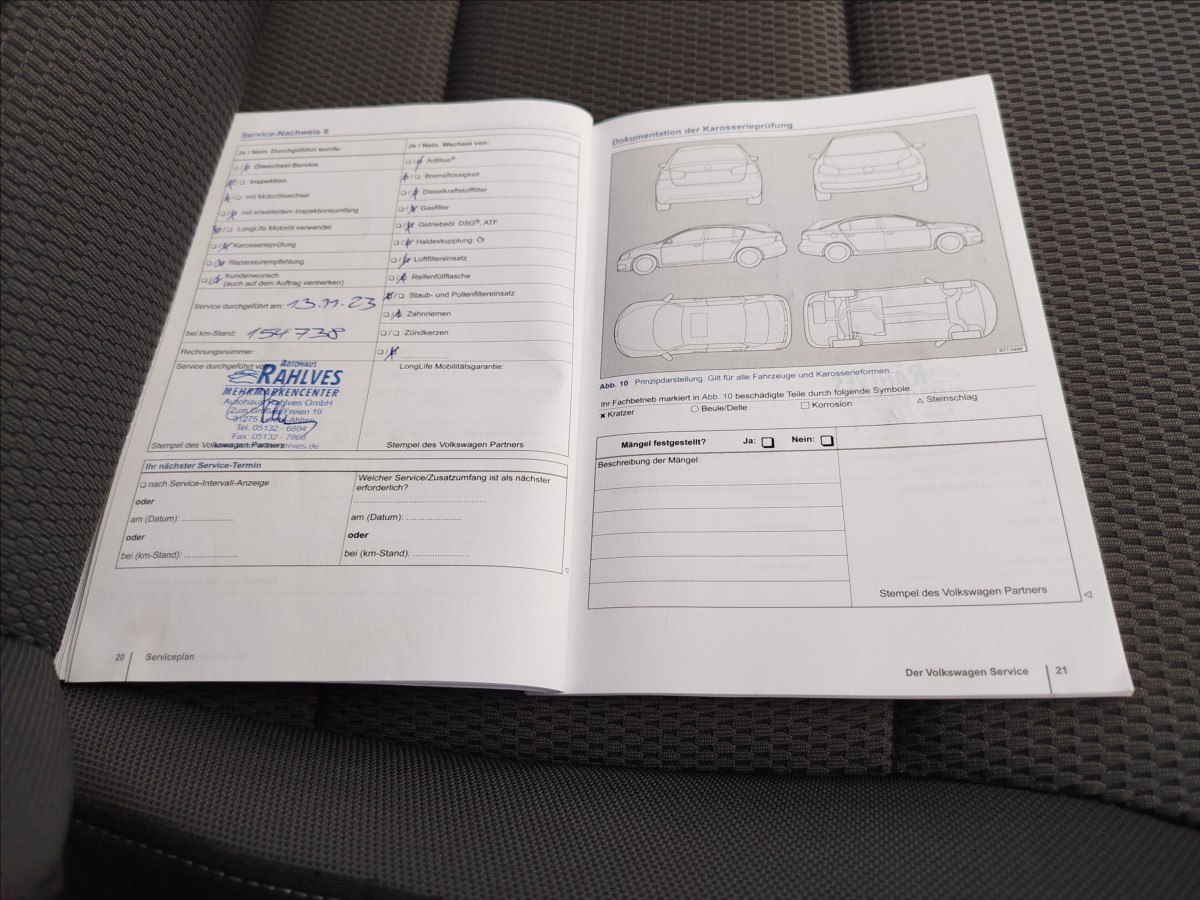 Service-Nachweis 8
Ja / Nein. Durchgeführt wurde:
Ölwechsel-Service
Inspektion
mit Motorölwechsel
mit erweitertem Inspektionsumfang
LongLife Motoröl verwendet
Karosserieprüfung
Reparaturempfehlung
Kundenwunsch
(auch auf dem Auftrag vermerken)
Service durchgeführt am: 13.11.23
bei km-Stand: 154738
Rechnungsnummer:
Service durchgeführt
AUTOHAUS
RAHLVES
MEHRMARKENCENTER
Autohaus Rahlves GmbH
Zum Großen Freien 19
31275
Tel. 05132 - 6604
Fax: 05132 - 7866
Stempel des Volkswagen Partners
Ja / Nein. Wechsel von:
AdBlue®
Bremsflüssigkeit
Dieselkraftstofffilter
Gasfilter
Getriebeöl: DSG®, ATF
Haldexkupplung: Öl
Luftfiltereinsatz
Reifenfüllflasche
Staub- und Pollenfiltereinsatz
Zahnriemen
Zündkerzen
LongLife Mobilitätsgarantie:
Stempel des Volkswagen Partners
Ihr nächster Service-Termin
nach Service-Intervall-Anzeige
oder
am (Datum): ....................
oder
bei (km-Stand): ....................
Welcher Service/Zusatzumfang ist als nächster
erforderlich?
am (Datum): ....................
oder
bei (km-Stand): ....................
20 Serviceplan
Dokumentation der Karosserieprüfung
Abb. 10 Prinzipdarstellung. Gilt für alle Fahrzeuge und Karosserieformen.
Ihr Fachbetrieb markiert in Abb. 10 beschädigte Teile durch folgende Symbole:
✖ Kratzer ○ Beule/Delle □ Korrosion △ Steinschlag
Mängel festgestellt? Ja: ❏ Nein: ❏
Beschreibung der Mängel:
Stempel des Volkswagen Partners
Der Volkswagen Service 21